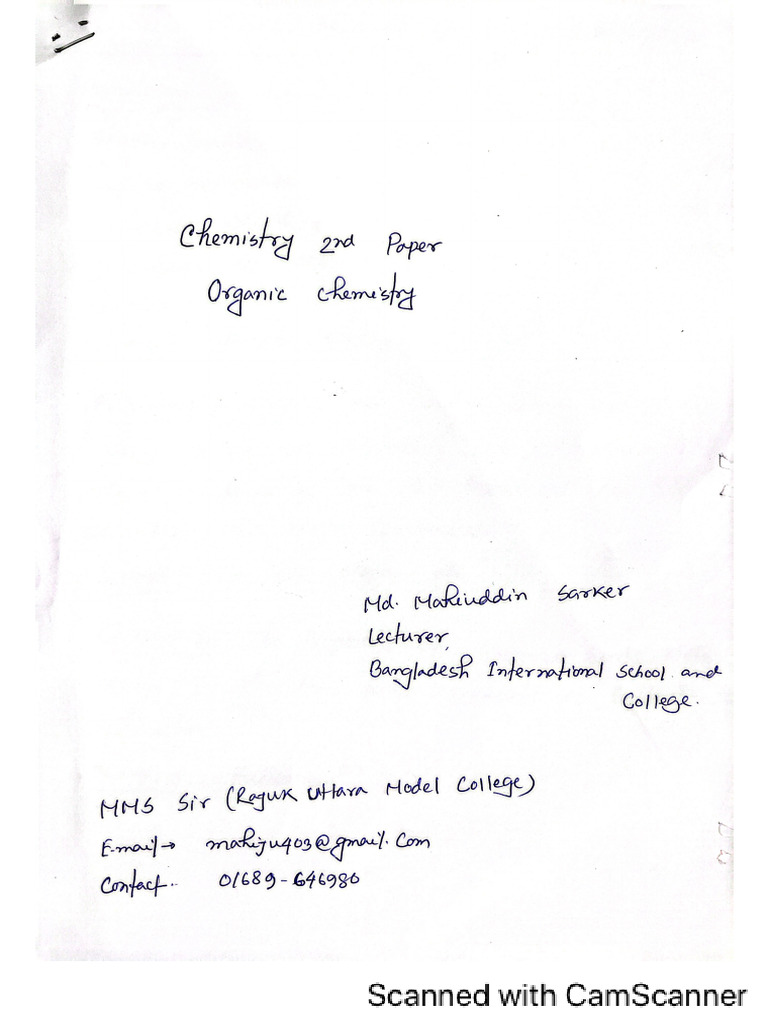 Chemistry 2nd Paper
Organic chemistry
Md. Mahiuddin Sarker
Lecturer,
Bangladesh International School and
College.
MMS Sir (Rajuk Uttara Model College)
E-mail → mahiju403@gmail.com
Contact.. 01689-646980
Scanned with CamScanner